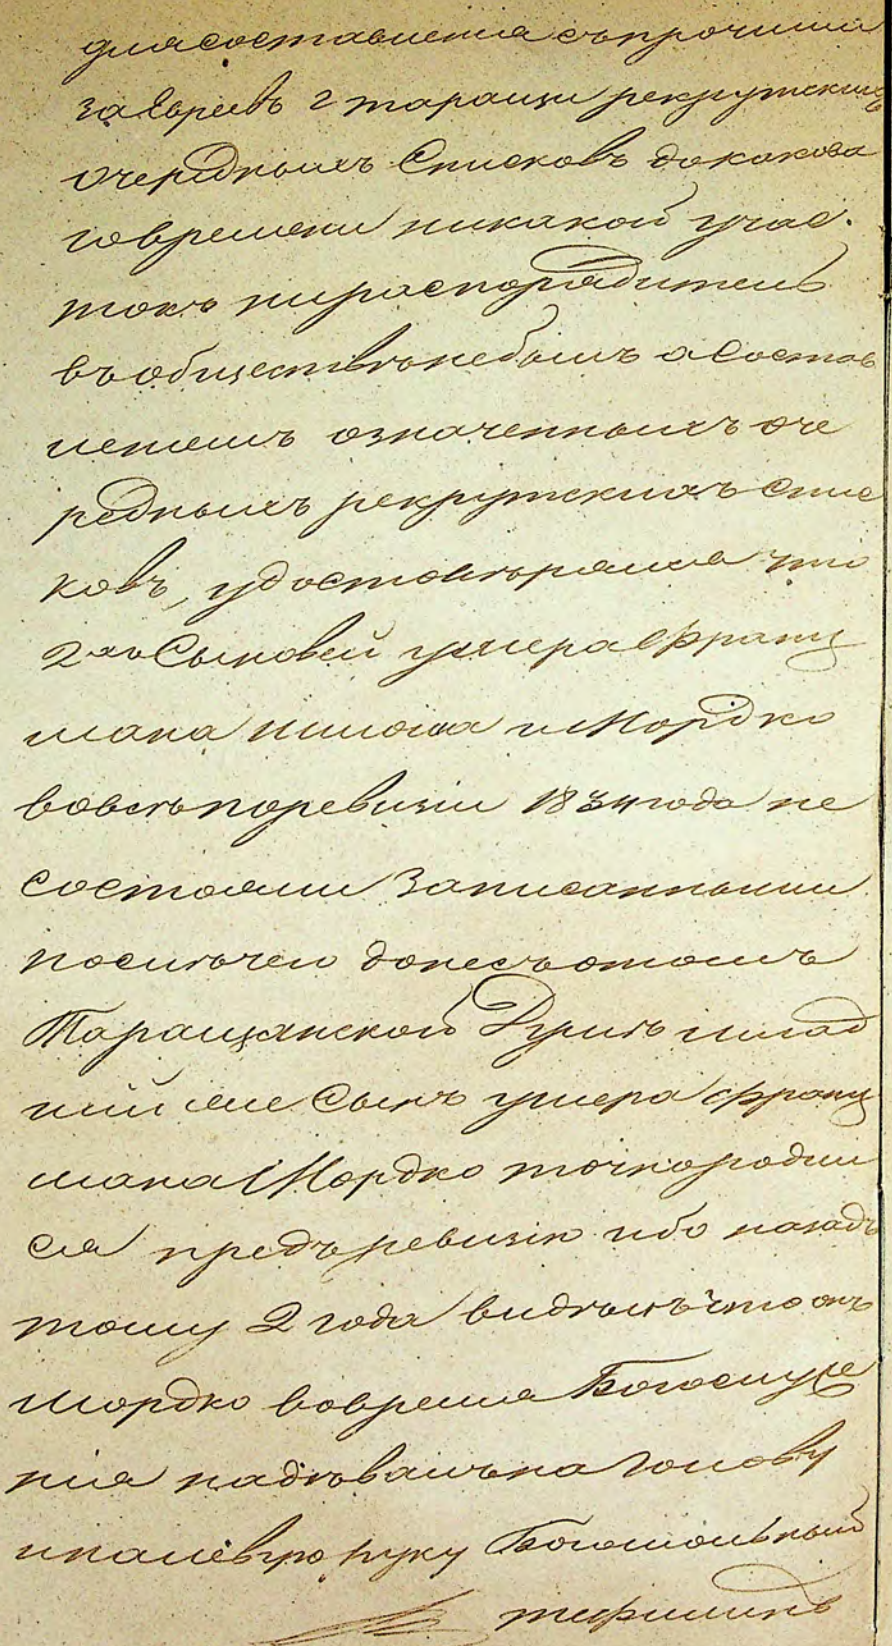 для составленія съпрочими
за Евреевъ г таращи рекрутскихъ
очередныхъ Списковъ до какова
го времени никакой учас.
токъ нираспорядитель
въ обществѣ небылъ а Состав
леніемъ означенныхъ оче
редныхъ рекрутскихъ спис
ковъ, удостовѣрился что
2хъ Сыновей умера Франц
мана Шлома и Мордко
вовсѣ поревизіи 1834 года не
состояли Записанными
посичему донесъ отомъ
Таращанской Думѣ млад
шій же Сынъ умера Франц
мана Мордко точно родил
ся предъ ревизіею ибо назадъ
тому 2 года видѣлъ что онъ
Мордко вовремя Богослуже
нія надѣвалъ на Голову
и налевую руку Богомольный
тифилинъ